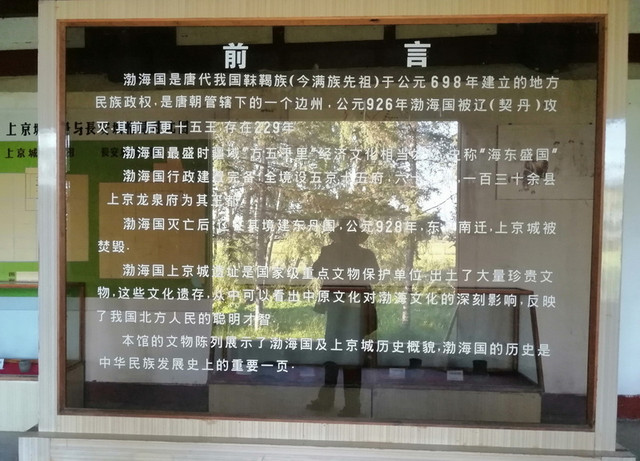 前言
渤海国是唐代我国靺鞨族(今满族先祖)于公元698年建立的地方
民族政权,是唐朝管辖下的一个边州,公元926年渤海国被辽(契丹)攻
灭,其前后更十五王,存在229年
渤海国最盛时 "方五千里"经济文化相当 称"海东盛国"
渤海国行政建 完备,全境设五京十五府,六十 ,一百三十余县
上京龙泉府为其
渤海国灭亡后, 其境建东丹国,公元928年,东 南迁,上京城被
焚毁.
渤海国上京城遗址是国家级重点文物保护单位,出土了大量珍贵文
物,这些文化遗存,从中可以看出中原文化对渤海文化的深刻影响,反映
了我国北方人民的聪明才智.
本馆的文物陈列展示了渤海国及上京城历史概貌,渤海国的历史是
中华民族发展史上的重要一页.
上京城 与長
上京城